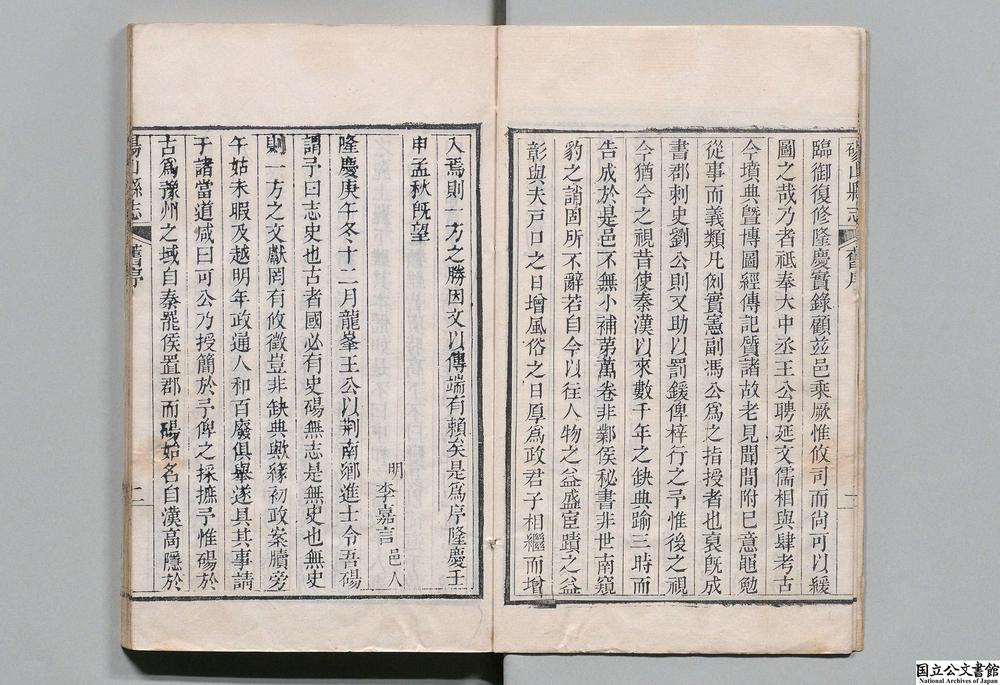 碭山縣志
舊序
二
臨御復修隆慶實錄顧並邑乘厥惟攸司而尙可以緩
圖之哉乃者祇奉大中丞王公聘延文儒相與肆考古
今墳典曁傳圖經傳記質諸故老見聞間附巳意黽勉
從事而義類凡例實憲副馮公爲之指授者也裒旣成
書郡刺史劉公則又助以罰鍰俾梓行之予惟後之視
今猶今之視昔使秦漢以來數千年之缺典踰三時而
告成於是邑不無小補苐萬卷非鄴侯秘書非世南窺
豹之誚固所不辭若自今以往人物之益盛宦蹟之益
彰與夫戸口之日增風俗之日厚爲政君子相繼而增
入焉則一方之勝因文以傳端有賴矣是爲序隆慶壬
申孟秋旣望
明
李嘉言邑人
隆慶庚午冬十二月龍峯王公以荆南鄉進士令吾碭
謂予曰志史也古者國必有史碭無志是無史也無史
則一方之文獻罔有攸徵豈非缺典歟緣初政案牘旁
午姑未暇及越明年政通人和百廢俱舉遂具其事請
于諸當道咸曰可公乃授簡於予俾之採摭予惟碭於
古爲豫州之域自秦罷侯置郡而碭如名自漢高隱於
碭山縣志
舊序
二
国立公文書館
National Archives of Japan